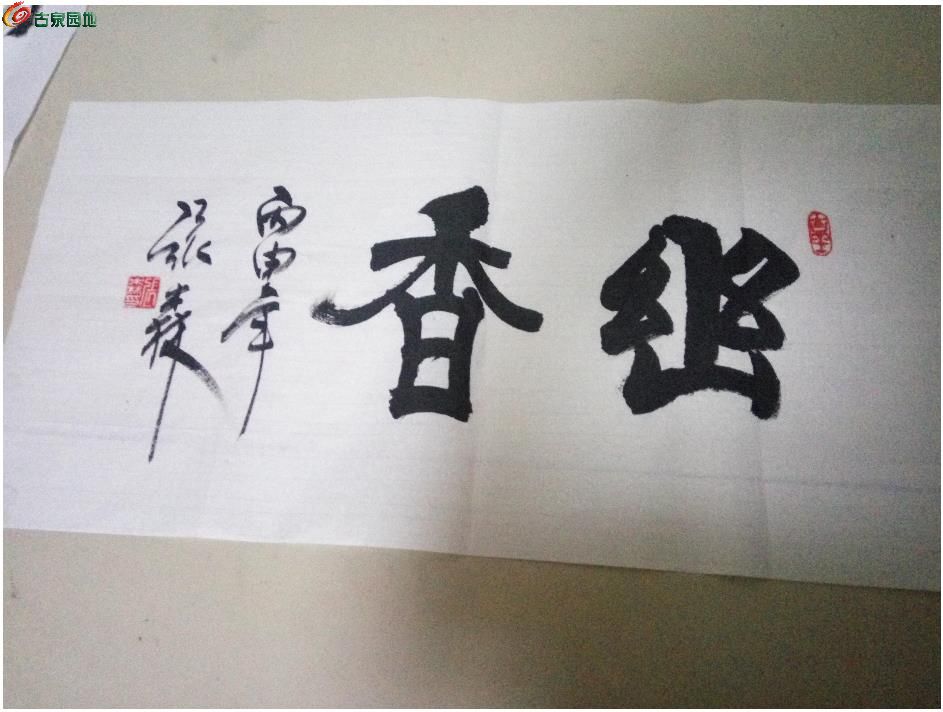 古泉园地
幽香
丙申年
张